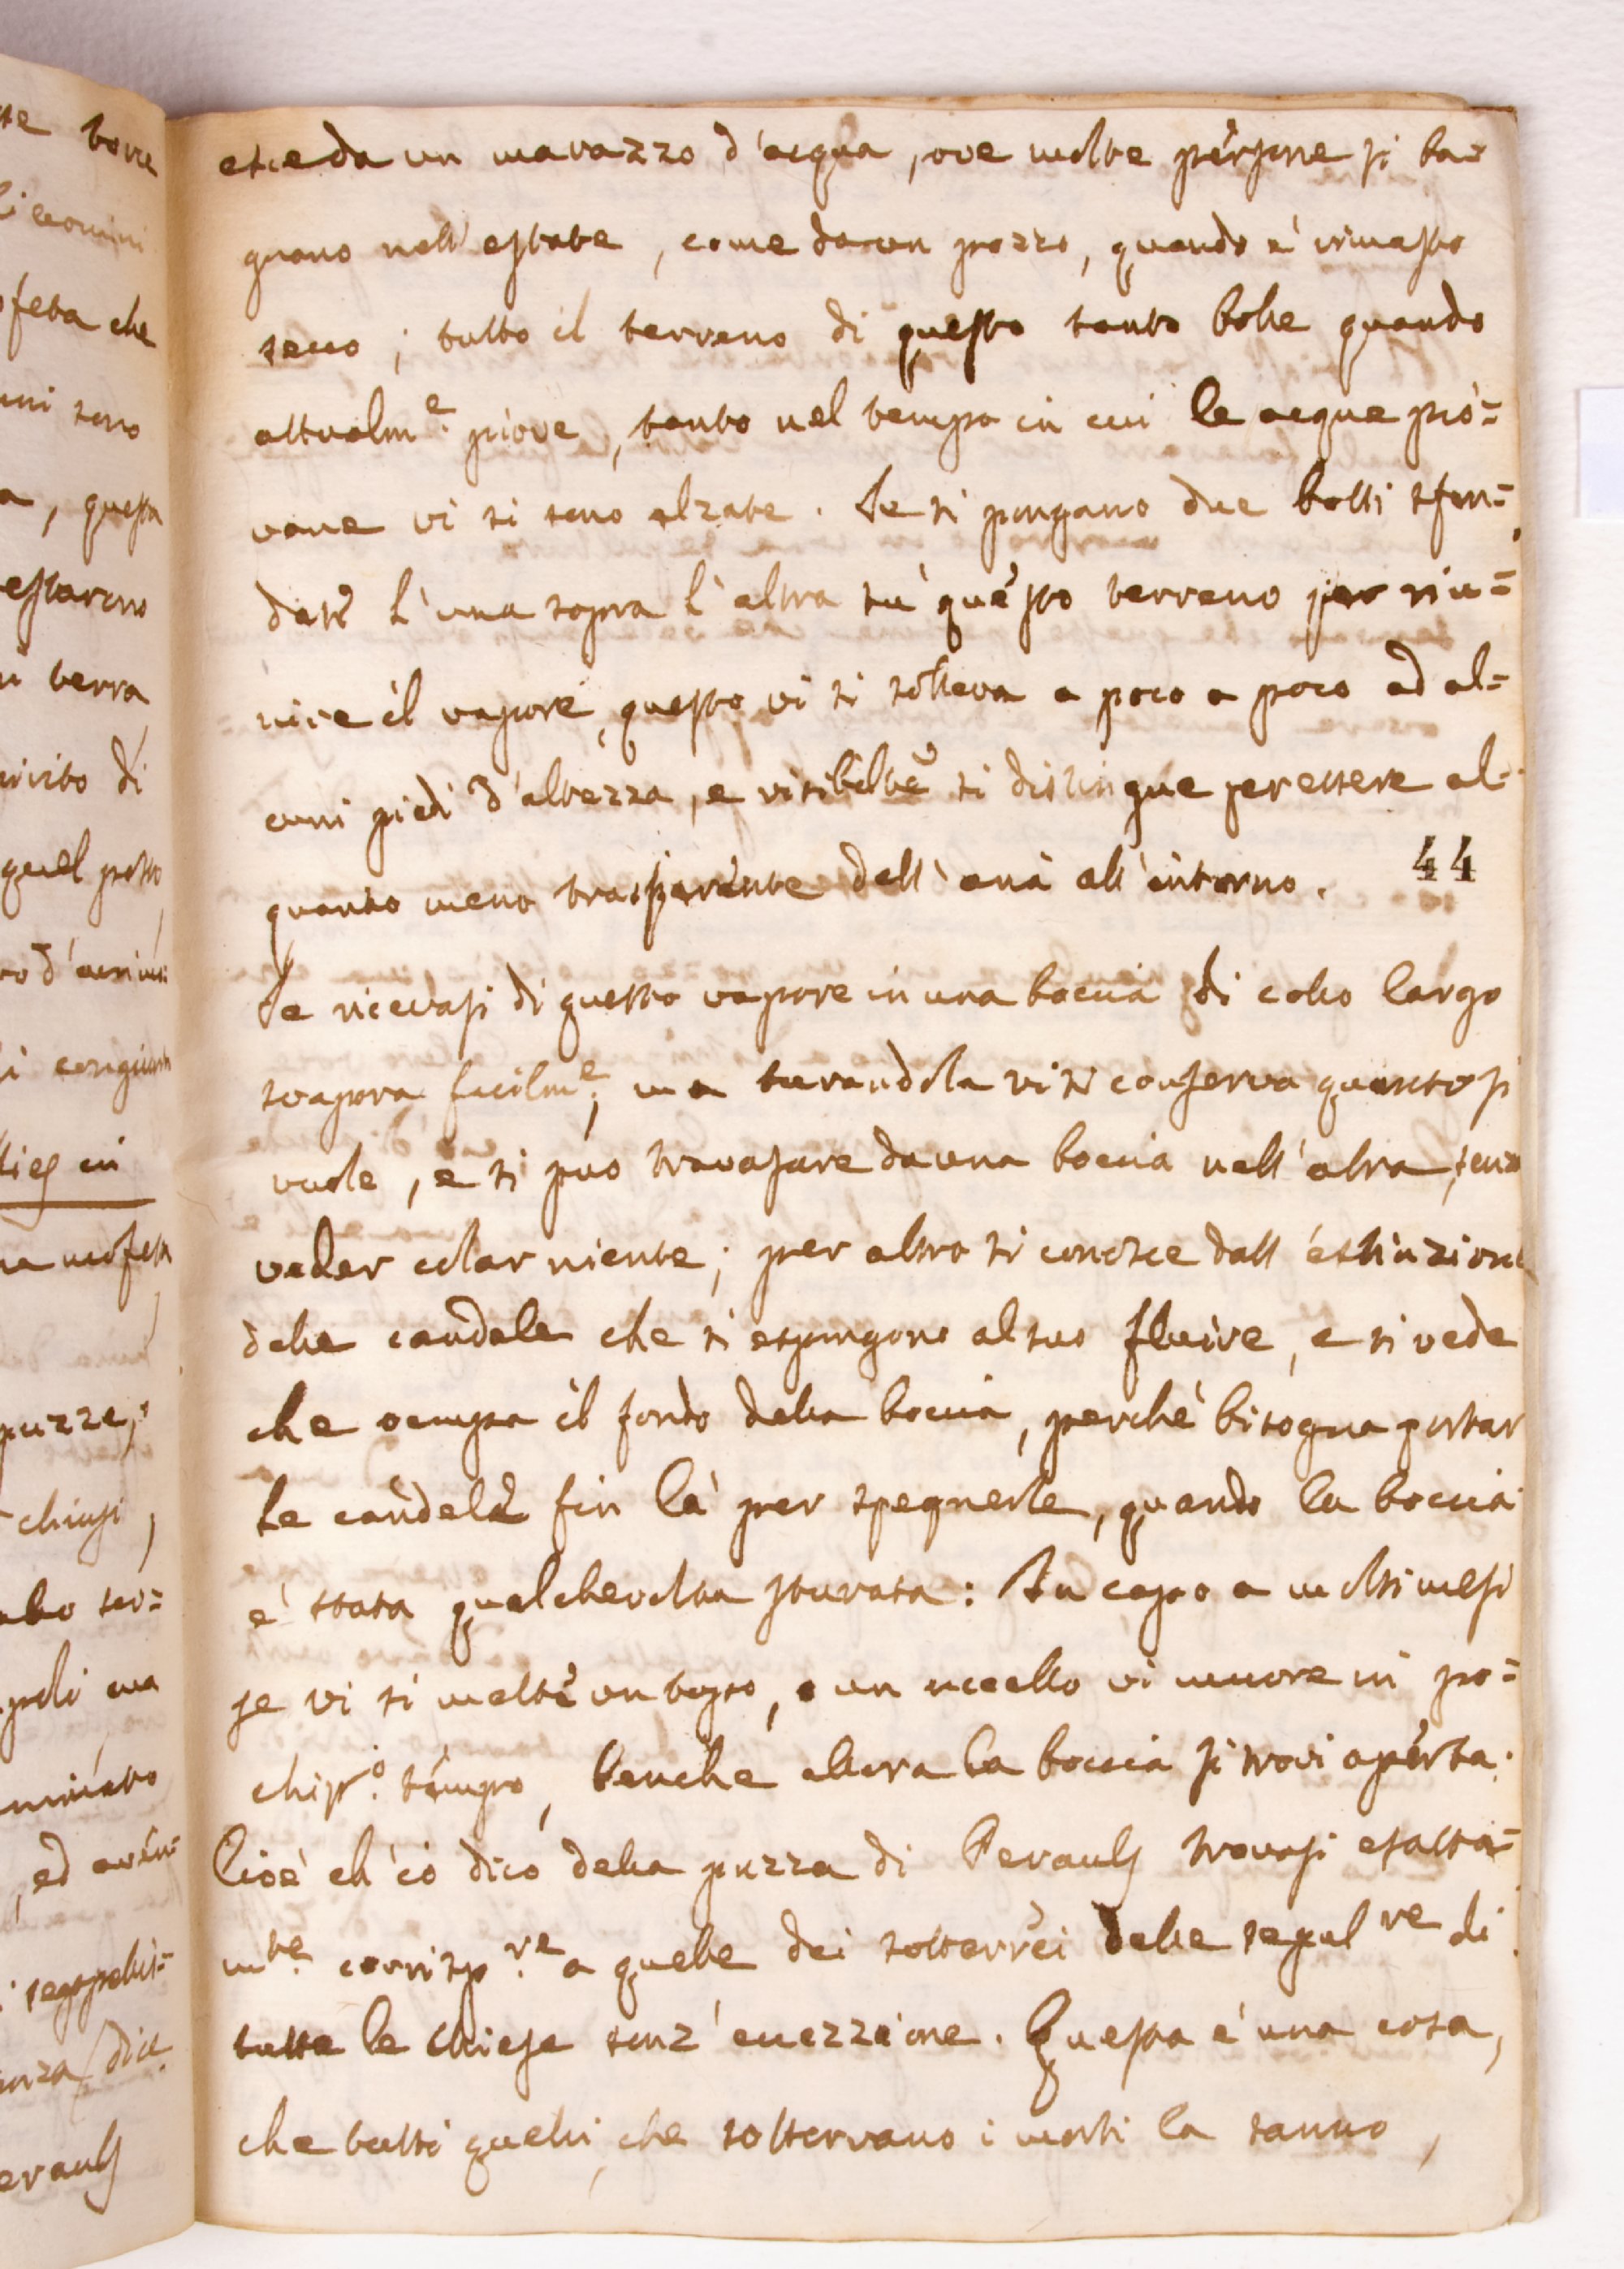 te bocce
li uomini
ofeta che
uni sono
a, questa
estarono
n terra
quel posto
ro d'animi
i congiunti
na mofeta
puzze;
chiusi,
mbo sor=
poli ma
minato
, ed avén=
enza (dice
erauls
esce da un mavazzo d'acqua, ove molte persone si ba=
gnano nell'estate, come da un pozzo, quando è rimasto
secco; tutto il terreno di questo tanto bolle quando
attualm.e piove, tanto nel tempo in cui le acque piò=
vane vi si sono alzate. Se si pongano due botti sfon=
date l'una sopra l'altra sù questo terreno per riu=
nire il vapore, questo vi si solleva a poco a poco ad al=
cuni piedi d'altezza, e visibilte si distingue per essere al=
quanto meno trasparente dell'aria all'intorno.
44
Se ricevasi di questo vapore in una boccia di collo largo
svapora facilm.e, ma turandola vi si conserva quanto si
vuole, e si può travasare da una boccia nell'altra, senza
veder colar niente; per altro si conosce dall'estinzione
delle candele che si espongono al suo fluire, e si vede
che occupa il fondo della boccia, perchè bisogna portar
le candele fin là per spegnerle, quando la boccia
è stata qualchevolta sturata: In capo a molti mesi
se vi si mette un topo, o un uccello vi muore in po=
chiss.o tempo, benche allora la boccia si trovi aperta.
Cioè ch'io dico della puzza di Perauls trovasi esatta=
m.te corrisp.re a quelle dei sotterrei delle sepol re di
tutte le chiese senz'eccezzione. Questa è una cosa,
che tutti quelli, che sotterrano i morti la sanno,